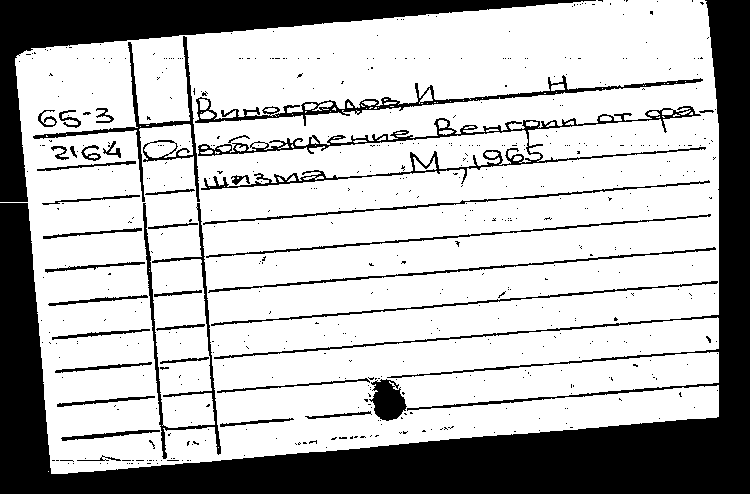 65-3 Виноградов, И Н
2164 Освобождение Венгрии от фа-
шизма. М., 1965.